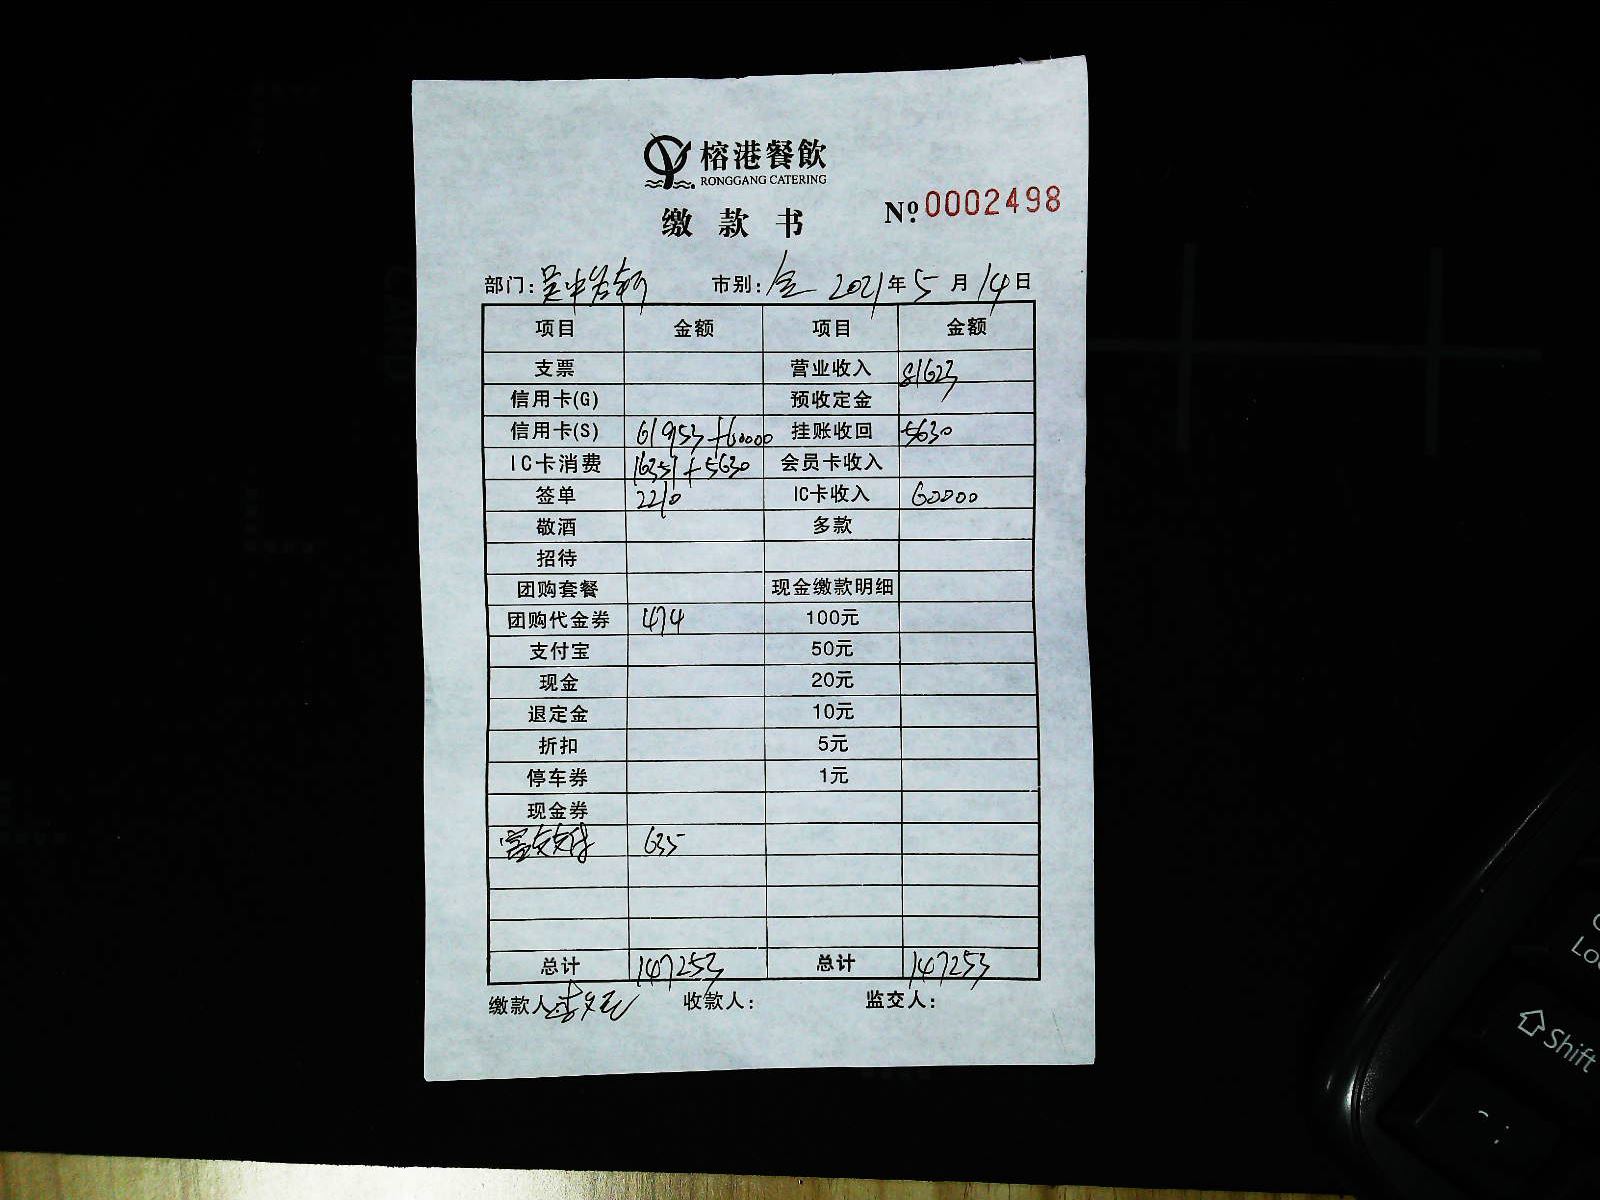 榕港餐飲
RONGGANG CATERING
缴款书 Nº. 0002498
部门: 吴中 市别: 全 2021年5月14日
项目 金额 项目 金额
支票 营业收入 81623
信用卡(G) 预收定金
信用卡(S) 61953+60000 挂账收回 5630
IC卡消费 16351+5630 会员卡收入
签单 2210 IC卡收入 60000
敬酒 多款
招待
团购套餐 现金缴款明细
团购代金券 474 100元
支付宝 50元
现金 20元
退定金 10元
折扣 5元
停车券 1元
现金券
富友支付 635
总计 147253 总计 147253
缴款人 收款人: 监交人:
Shift